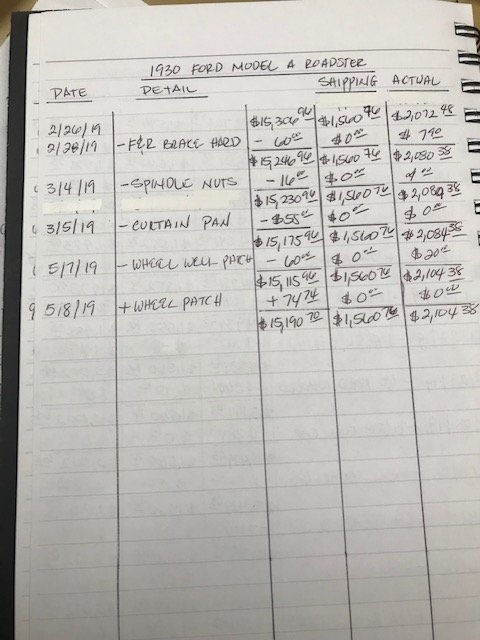 1930 FORD MODEL A ROADSTER
DATE DETAIL SHIPPING ACTUAL
2/26/19 $15,306.96 $1,560.76 $2,072.48
2/28/19 - F&R BRAKE HARD - 60.00 $0.00 $ 7.90
$15,246.96 $1,560.76 $2,080.38
3/4/19 - SPINDLE NUTS - 16.00 $0.00 4.00
$15,230.96 $1,560.76 $2,084.38
3/5/19 - CURTAIN PAN - $55.00 $0.00 $ 0.00
$15,175.96 $1,560.76 $2,084.38
5/7/19 - WHEEL WELL PATCH - 60.00 $ 0.00 $20.00
$15,115.96 $1,560.76 $2,104.38
5/8/19 + WHEEL PATCH + 74.74 $ 0.00 $0.00
$15,190.70 $1,560.76 $2,104.38